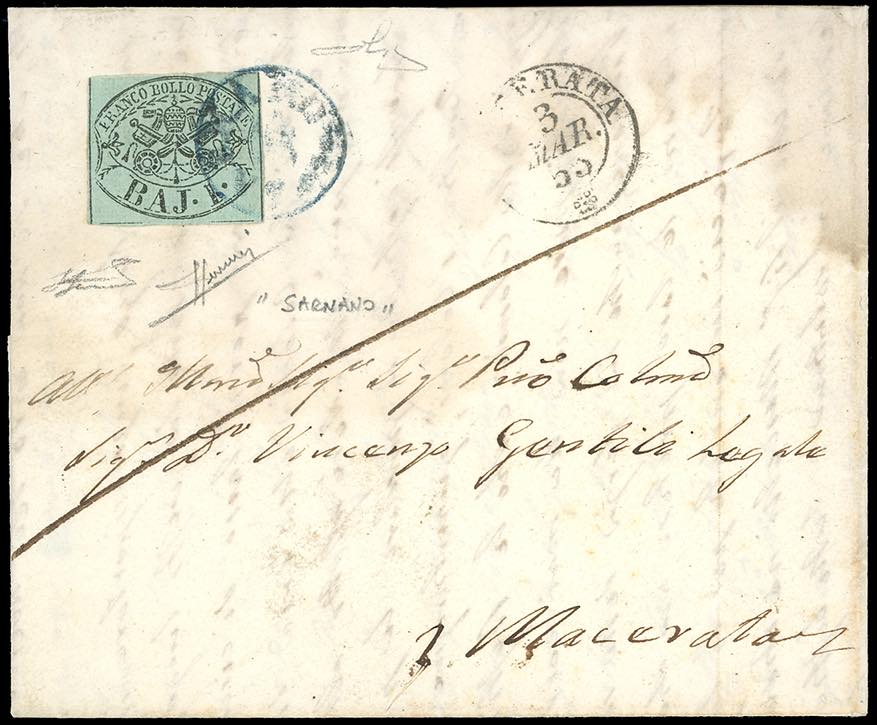 FRANCO BOLLO POSTALE
BAJ. 1.
ERATA
3
MAR.
55
"SARNANO"
All' Illmo Sigre Sigr Prõn Colmo
Sigr Dn Vincenzo Gentili Legale
Macerata